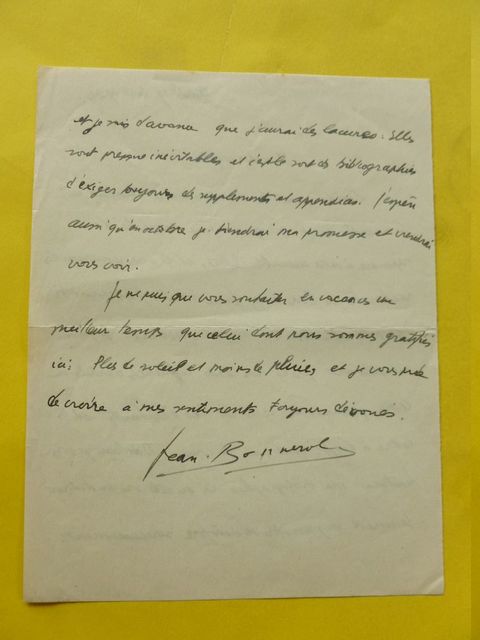 et je sais d'avance que j'aurai des lacunes. Elles
sont presque inévitables et c'est le sort des bibliographies
d'exiger toujours des suppléments et appendices. J'espère
aussi qu'en octobre je tiendrai ma promesse et viendrai
vous voir.
Je ne puis que vous souhaiter, en vacances un
meilleur temps que celui dont nous sommes gratifiés
ici: Plus de soleil et moins de pluies et je vous prie
de croire à mes sentiments toujours dévoués.
Jean Bonnerot